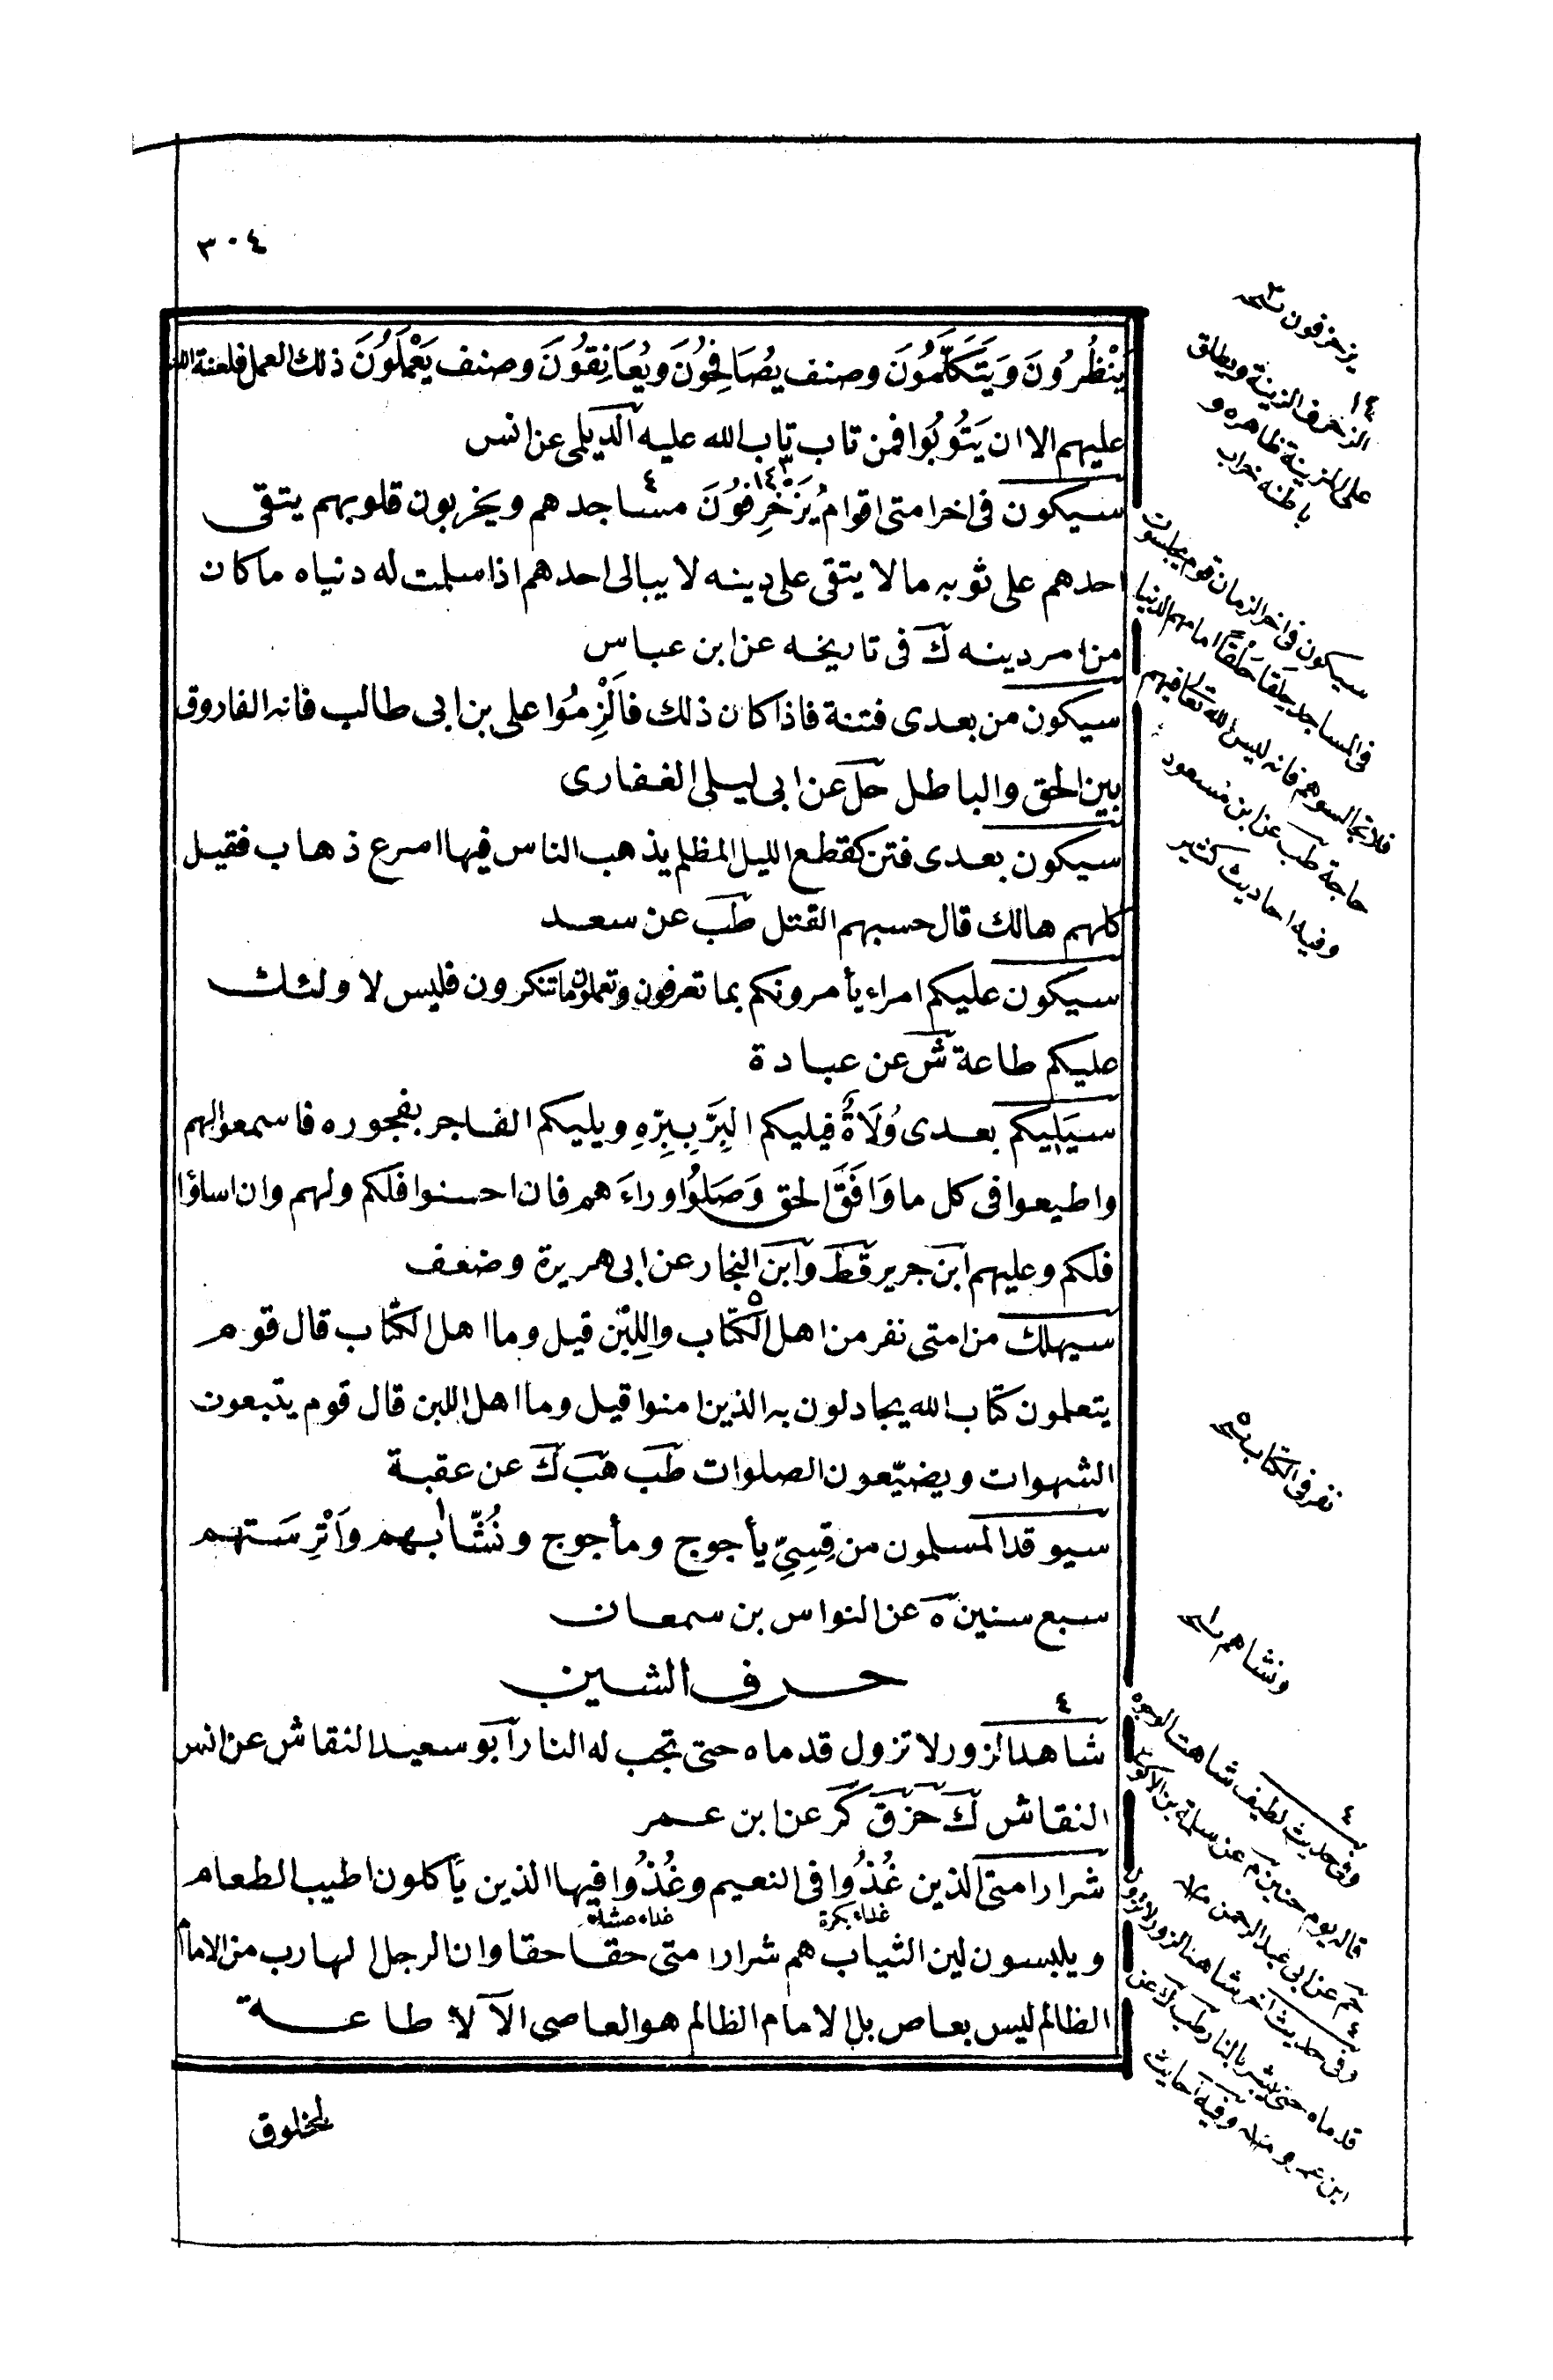 ٣٠٤
يَنْظُرُونَ وَيَتَكَلَّمُونَ وصنف يُصَافِحُونَ وَيُعَانِقُونَ وصنف يَعْمَلُونَ ذلك العمل فلعنة الله
عليهم الا ان يَتُوبُوا فمن تاب تاب الله عليه الديلمى عن انس
سيكون فى اخر امتى اقوامُ يُزَخْرِفُونَ مساجدهم ويخربون قلوبهم يتقى
احدهم على ثوبه ما لا يتقى على دينه لا يبالى احدهم اذا سلمت له دنياه ما كان
من امر دينه ك فى تاريخه عن ابن عباس
سيكون من بعدى فتنة فاذا كان ذلك فَالْزِمُوا على بن ابى طالب فانه الفاروق
بين الحق والباطل حل عن ابى ليلى الغفارى
سيكون بعدى فتن كقطع الليل المظلم يذهب الناس فيها اسرع ذهاب فقيل
كلهم هالك قال حسبهم القتل طب عن سعد
سيكون عليكم امراء يأمرونكم بما تعرفون وتعملون ما تنكرون فليس لاولئك
عليكم طاعة ش عن عبادة
سيَلِيكم بعدى وُلَاةٌ فيليكم البِرَّ بِبِرِّهِ ويليكم الفاجر بفجوره فاسمعوا لهم
واطيعوا فى كل ما وَافَقَ الحق وَصَلُوا وراءَهم فان احسنوا فلكم ولهم وان اساؤا
فلكم وعليهم ابن جرير قط وابن النجار عن ابى هريرة وضعف
سيهلك من امتى نفر من اهل الكتاب واللِبْن قيل وما اهل الكتاب قال قوم
يتعلمون كتاب الله يجادلون به الذين امنوا قيل وما اهل اللبن قال قوم يتبعون
الشهوات ويضيّعون الصلوات طب هب ك عن عقبة
سيوقد المسلمون من قِسِيِّ يأجوج ومأجوج ونُشّابهم واَتْرِسَتهم
سبع سنين ه عن النواس بن سمعان
حرف الشين
شاهد الزور لا تزول قدماه حتى تجب له النار ابو سعيد النقاش عن انس
النقاش ك خز ق كر عن ابن عمر
شرار امتى الذين غُذُوا فى النعيم وغُذُوا فيها الذين يأكلون اطيب الطعام
غداء بكرة
ويلبسون لين الثياب هم شرار امتى حقا حقا وان الرجل الهارب من الامام
الظالم ليس بعاص بل الامام الظالم هو العاصى الآ لا طاعة
لمخلوق
يزخرفون
الزخرف الزينة ويطلق
على المزينة ظاهره و
باطنه خراب
سيكون فى اخر الزمان قوم يجلسون
فى المساجد حِلَقا حِلَقًا امامهم الدنيا
فلا تجالسوهم فانه ليس لله تعالى فيهم
حاجة طب عن ابن مسعود
وفيه احاديث كثير
نفر فى الكتاب
ونشاهم
وفى حديث لطيف شاهت الوجوه
قاله يوم حنين م عن سلمة بن الاكوع
حم عن ابى عبد الرحمن
وفى حديث آخر شاهد الزور لا تزول
قدماه حتى يبشر بالنار طب ك عن
ابن عمر وفيه احاديث